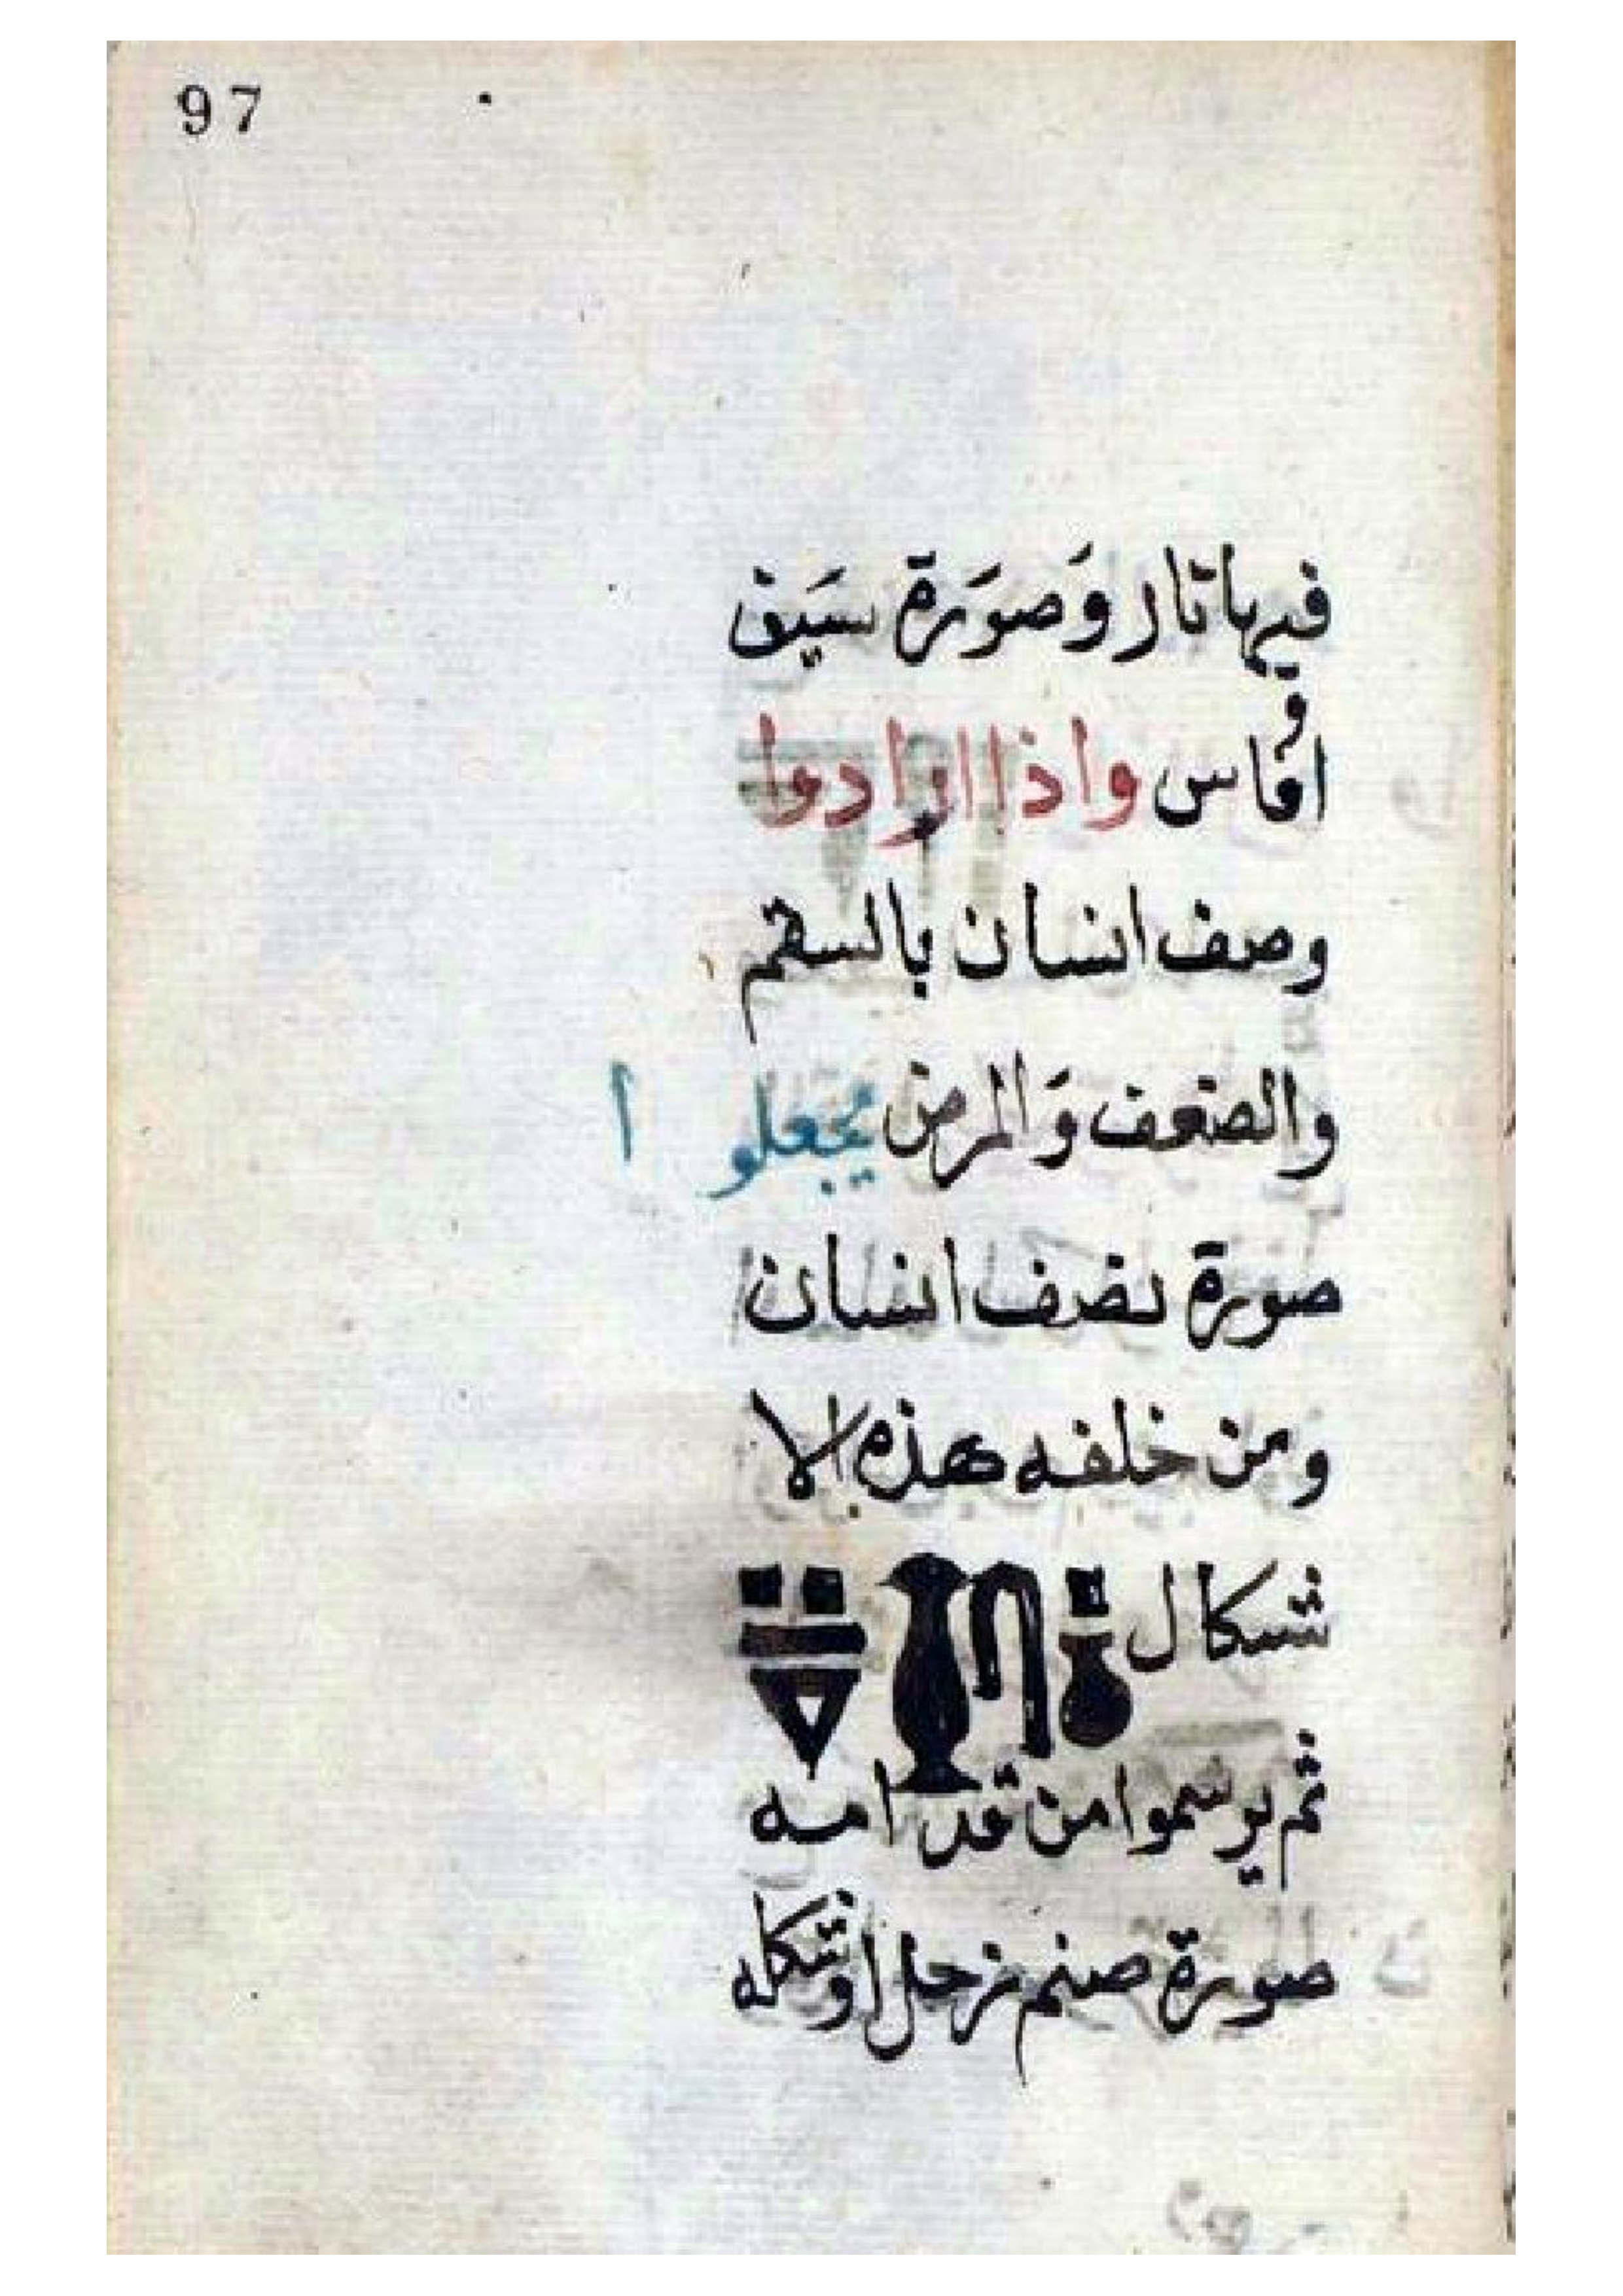 97
فيها نار وَصوَرة سَيف
و
افاس واذا ارادوا
وصف انسان بالسقم
والضعف وَالمرض يجعلوا
صورة نصف انسان
ومن خلفه هذه الا
شكال
ثم يرسموا من قدامه
صورة صنم زحل اوشكله